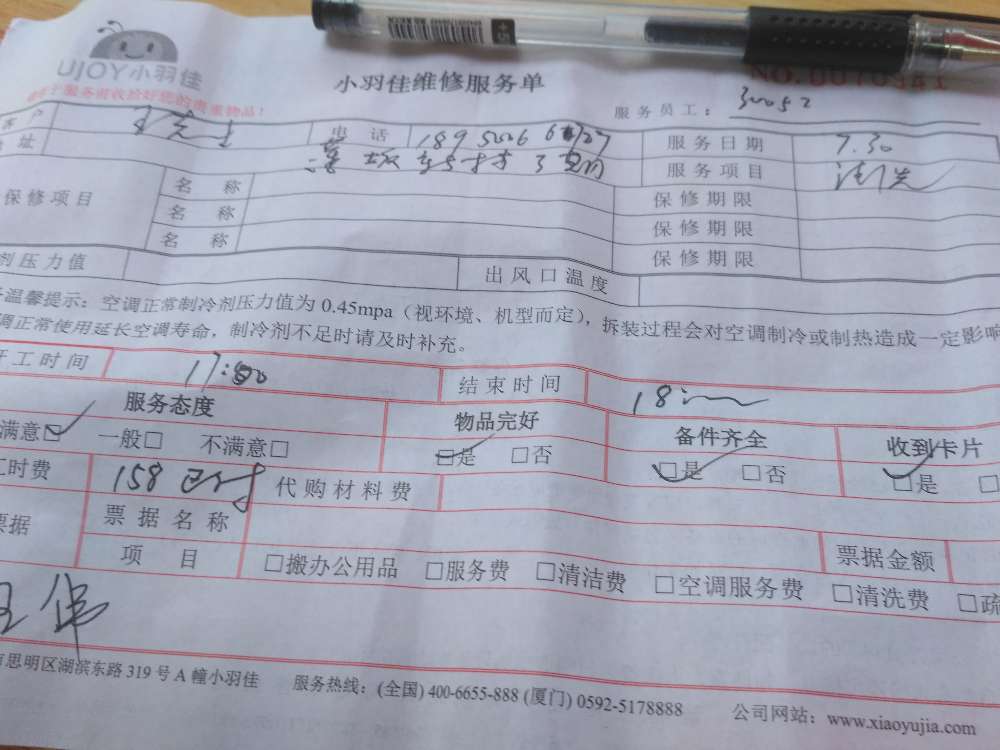 UJOY小羽佳
小羽佳维修服务单
NO.0070341
服务前收拾好您的贵重物品!
服务员工: 30052
户 电话 服务日期 7.30
址 服务项目 清洗
保修项目 名称 保修期限
名称 保修期限
名称 保修期限
剂压力值 出风口温度
温馨提示:空调正常制冷剂压力值为 0.45mpa(视环境、机型而定),拆装过程会对空调制冷或制热造成一定影响
调正常使用延长空调寿命,制冷剂不足时请及时补充。
开工时间 17:00 结束时间 18:
服务态度 物品完好 备件齐全 收到卡片
满意☑ 一般□ 不满意□ ☑是 □否 ☑是 □否 ☑是 □
工时费 158 已付 代购材料费
票据 票据名称 票据金额
项目 □搬办公用品 □服务费 □清洁费 □空调服务费 □清洗费 □疏
王伟
思明区湖滨东路 319 号 A 幢小羽佳 服务热线:(全国) 400-6655-888 (厦门) 0592-5178888 公司网站:www.xiaoyujia.com